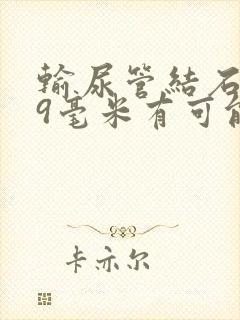 输尿管结石
9毫米有可能
卡亦尔